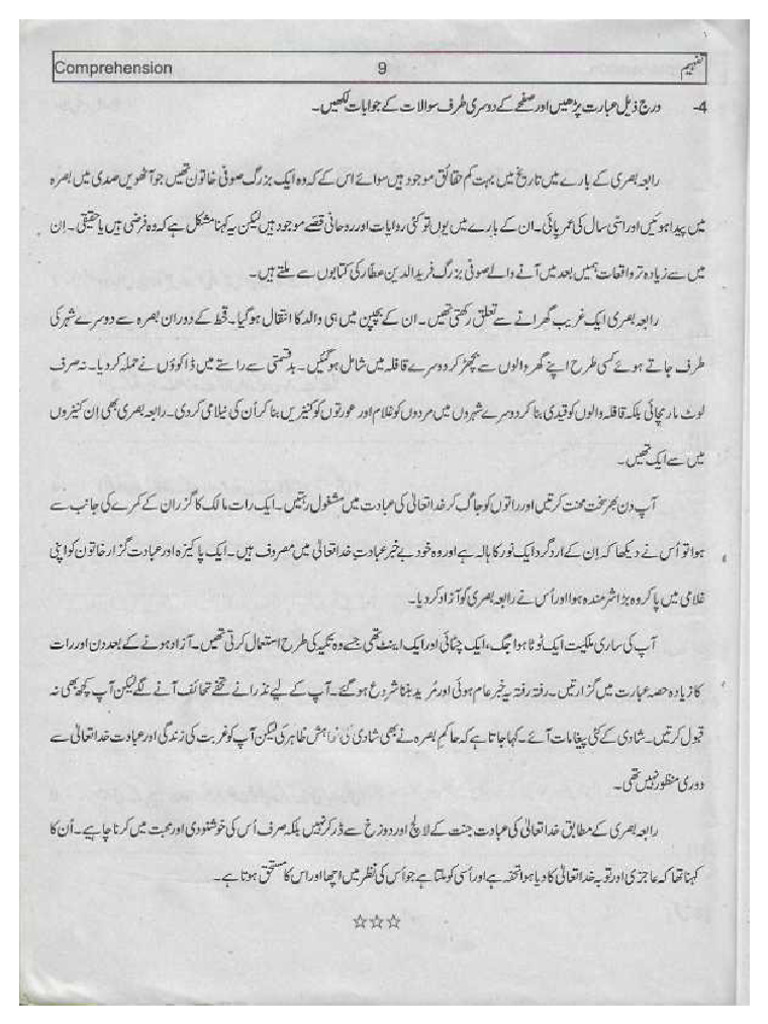 Comprehension 9 تفہیم
4- درج ذیل عبارت پڑھیں اور صفحے کے دوسری طرف سوالات کے جوابات لکھیں۔
رابعہ بصری کے بارے میں تاریخ میں بہت کم حقائق موجود ہیں سوائے اس کے کہ وہ ایک بزرگ صوفی خاتون تھیں جو آٹھویں صدی میں بصرہ
میں پیدا ہوئیں اور اسّی سال کی عمر پائی۔ ان کے بارے میں یوں تو کئی روایات اور روحانی قصّے موجود ہیں لیکن یہ کہنا مشکل ہے کہ وہ فرضی ہیں یا حقیقی۔ اِن
میں سے زیادہ تر واقعات ہمیں بعد میں آنے والے صوفی بزرگ فرید الدین عطّار کی کتابوں سے ملتے ہیں۔
رابعہ بصری ایک غریب گھرانے سے تعلق رکھتی تھیں۔ ان کے بچپن میں ہی والد کا انتقال ہوگیا۔ قحط کے دوران بصرہ سے دوسرے شہر کی
طرف جاتے ہوئے کسی طرح اپنے گھر والوں سے بچھڑ کر دوسرے قافلہ میں شامل ہوگئیں۔ بدقسمتی سے راستے میں ڈاکوؤں نے حملہ کر دیا۔ نہ صرف
لوٹ مار مچائی بلکہ قافلہ والوں کو قیدی بنا کر دوسرے شہروں میں مردوں کو غلام اور عورتوں کو کنیزیں بنا کر اُن کی نیلامی کر دی۔ رابعہ بصری بھی اِن کنیزوں
میں سے ایک تھیں۔
آپ دن بھر سخت محنت کرتیں اور راتوں کو جاگ کر خدا تعالیٰ کی عبادت میں مشغول رہتیں۔ ایک رات مالک کا گزر ان کے کمرے کی جانب سے
ہوا تو اُس نے دیکھا کہ اِن کے ارد گرد ایک نور کا ہالہ ہے اور وہ خود بے خبر عبادتِ خدا تعالیٰ میں مصروف ہیں۔ ایک پاکیزہ اور عبادت گزار خاتون کو اپنی
غلامی میں پا کر وہ بڑا شرمندہ ہوا اور اُس نے رابعہ بصری کو آزاد کر دیا۔
آپ کی ساری ملکیت ایک ٹوٹا ہوا جگ، ایک چٹائی اور ایک اینٹ تھی جسے وہ تکیہ کی طرح استعمال کرتی تھیں۔ آزاد ہونے کے بعد دن اور رات
کا زیادہ حصہ عبارت میں گزارتیں۔ رفتہ رفتہ یہ خبر عام ہوئی اور مُرید بننا شروع ہو گئے۔ آپ کے لیے نذرانے تحفے تحائف آنے لگے لیکن آپ کچھ بھی نہ
قبول کرتیں۔ شادی کے کئی پیغامات آئے۔ کہا جاتا ہے کہ حاکمِ بصرہ نے بھی شادی کی خواہش ظاہر کی لیکن آپ کو غربت کی زندگی اور عبادت خدا تعالیٰ سے
دوری منظور نہیں تھی۔
رابعہ بصری کے مطابق خدا تعالیٰ کی عبادت جنت کے لالچ اور دوزخ سے ڈر کر نہیں بلکہ صرف اُس کی خوشنودی اور محبت میں کرنا چاہیے۔ اُن کا
کہنا تھا کہ عاجزی اور توبہ خدا تعالیٰ کا دیا ہوا تحفہ ہے اور اُسی کو ملتا ہے جو اُس کی نظر میں اچھا اور اس کا مستحق ہوتا ہے۔
☆☆☆